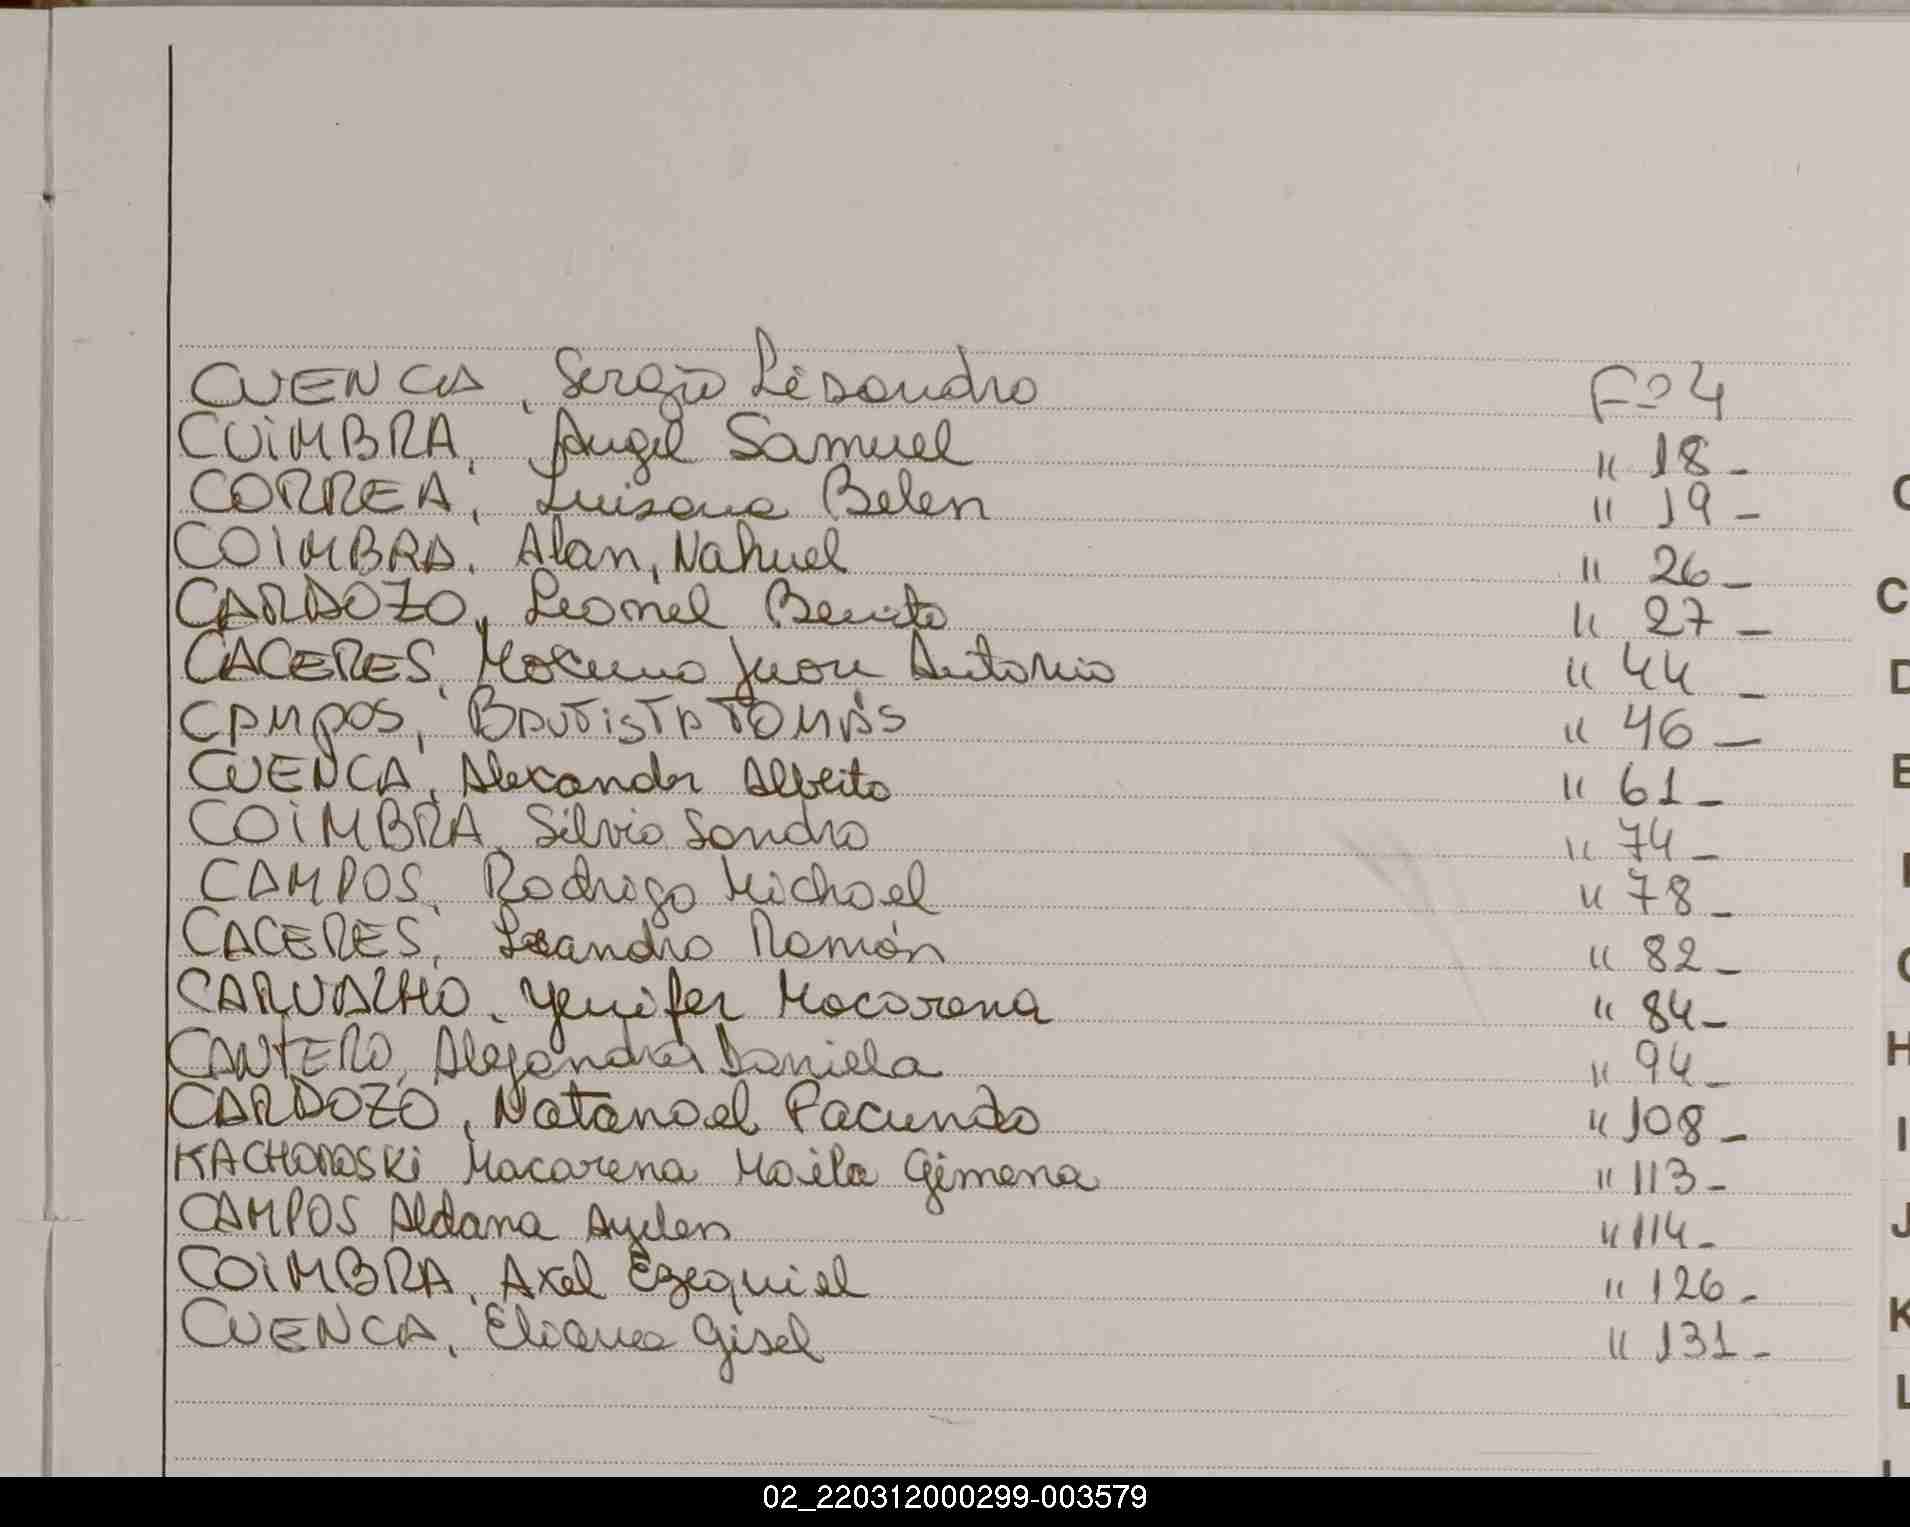 CUENCA, Sergio Lisandro Fº 4
CUIMBRA, Angel Samuel " 18 -
CORREA, Luisana Belen " 19 -
COIMBRA, Alan, Nahuel " 26 -
CARDOZO, Leonel Benito " 27 -
CACERES, Juan Antonio " 44 -
CAMPOS, BAUTISTA TOMÁS " 46 -
CUENCA, Alexandr Alberto " 61 -
COIMBRA, Silvio Sandro " 74 -
CAMPOS, Rodrigo Michael " 78 -
CACERES, Leandro Ramón " 82 -
CARVALHO, Yenifer Macarena " 84 -
CANTERO, Alejandra Daniela " 94 -
CARDOZO, Natanael Facundo " 108 -
Macarena Gimena " 113 -
CAMPOS Aldana Aylen " 114 -
COIMBRA, Axel Ezequiel " 126 -
CUENCA, Eliana Gisel " 131 -
C
D
E
G
H
I
J
K
L
02_220312000299-003579